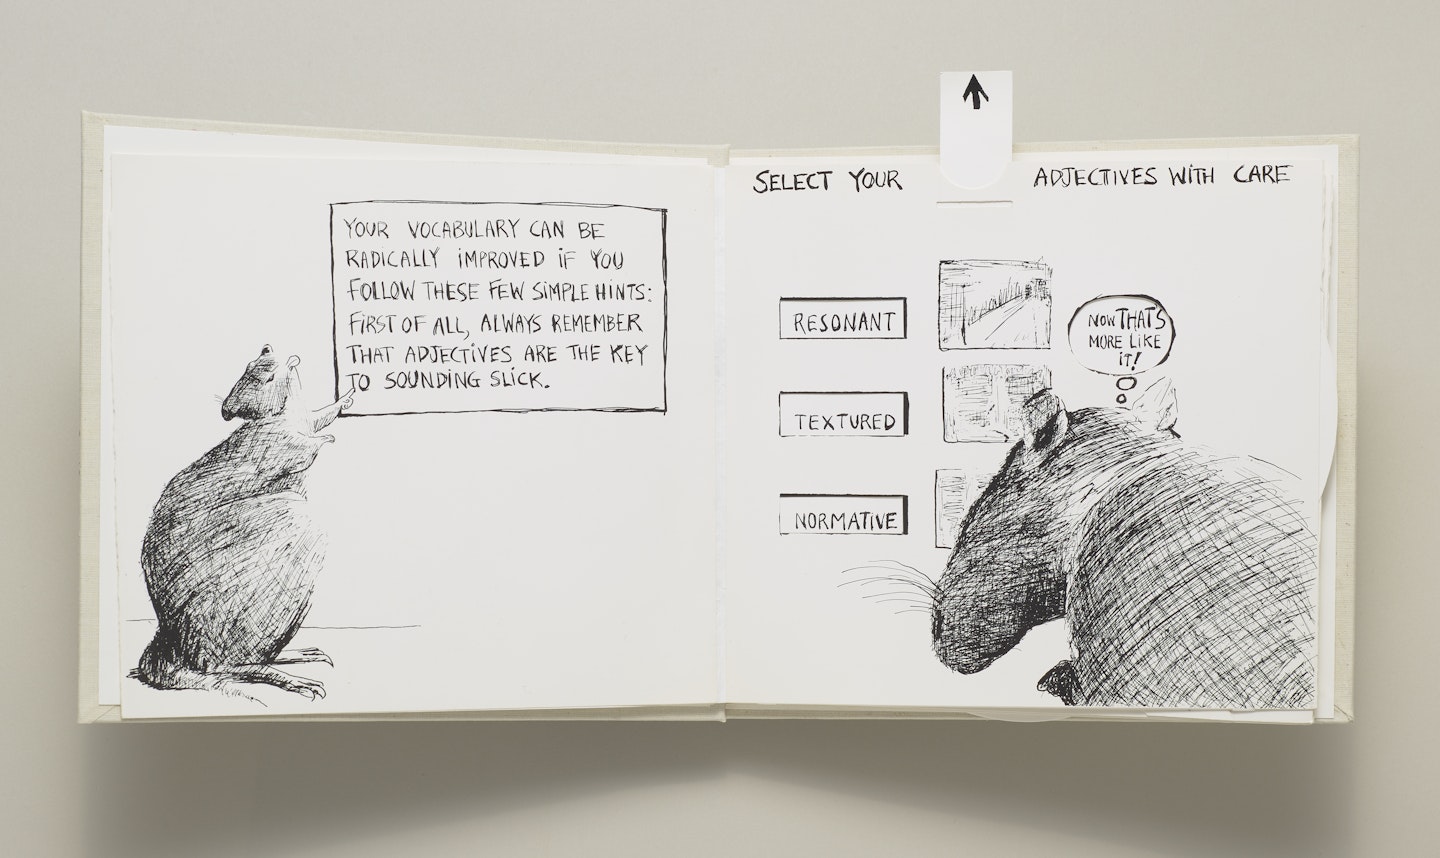 YOUR VOCABULARY CAN BE
RADICALLY IMPROVED IF YOU
FOLLOW THESE FEW SIMPLE HINTS:
FIRST OF ALL, ALWAYS REMEMBER
THAT ADJECTIVES ARE THE KEY
TO SOUNDING SLICK.
SELECT YOUR ADJECTIVES WITH CARE
RESONANT
TEXTURED
NORMATIVE
NOW THAT'S
MORE LIKE
IT!